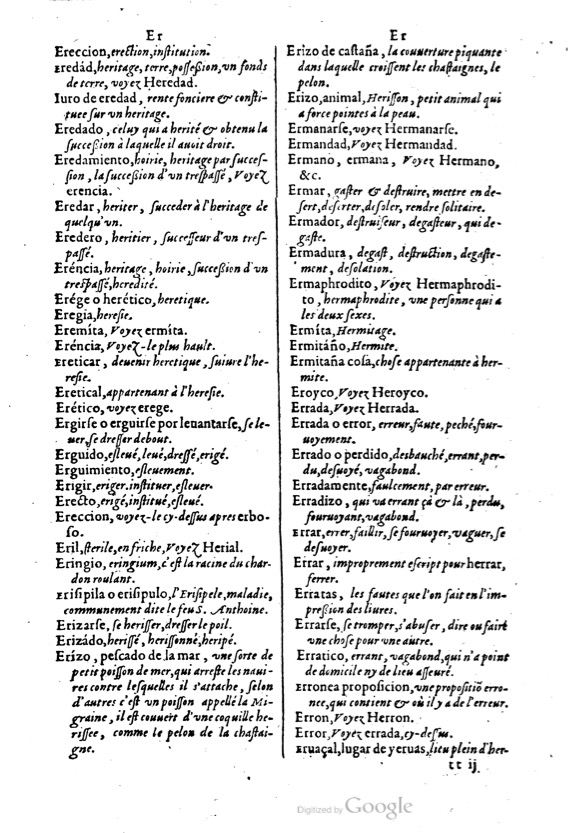 Er
Ereccion, erection, institution.
Eredád, heritage, terre, possession, vn fonds
de terre, voyez Heredad.
Iuro de eredad, rente fonciere & consti-
tuee sur vn heritage.
Eredado, celuy qui a herité & obtenu la
succeßion à laquelle il auoit droit.
Eredamiento, hoirie, heritage par succes-
sion, la succeßion d'vn trespassé, Voyez
erencia.
Eredar, heriter, succeder à l'heritage de
quelqu'vn.
Eredero, heritier, successeur d'vn tres-
passé.
Eréncia, heritage, hoirie, succeßion d'vn
trespassé, heredité.
Erége o herético, heretique.
Eregia, heresie.
Eremíta, Voyez ermíta.
Eréncia, Voyez-le plus hault.
Ereticar, deuenir heretique, suiure l'he-
resie.
Eretical, appartenant à l'heresie.
Erético, voyez erege.
Ergirse o erguirse por leuantarse, se le-
uer, se dresser debout.
Erguido, esleué, leué, dressé, erigé.
Erguimiento, esleuement.
Erigir, eriger, instituer, esleuer.
Erecto, erigé, institué, esleué.
Ereccion, voyez-le cy-dessus apres erbo-
so.
Eril, sterile, en friche, Voyez Herial.
Eringio, eringium, c'est la racine du char-
don roulant.
Erisipila o erisipulo, l'Erisipele, maladie,
communement dite le feu S. Anthoine.
Erizarse, se herisser, dresser le poil.
Erizádo, herissé, herissonné, heripé.
Erízo, pescado de la mar, vne sorte de
petit poisson de mer, qui arreste les naui-
res contre lesquelles il s'attache, selon
d'autres c'est vn poisson appellé la Mi-
graine, il est couuert d'vne coquille he-
rissee, comme le pelon de la chastai-
gne.
Er
Erizo de castaña, la couuerture piquante
dans laquelle croissent les chastaignes, le
pelon.
Erizo, animal, Herisson, petit animal qui
a force pointes à la peau.
Ermanarse, voyez Hermanarse.
Ermandad, Voyez Hermandad.
Ermano, ermana, Voyez Hermano,
&c.
Ermar, gaster & destruire, mettre en de-
sert, deserter, desoler, rendre solitaire.
Ermador, destruiseur, degasteur, qui de-
gaste.
Ermadura, degast, destruction, degaste-
ment, desolation.
Ermaphrodito, Voyez Hermaphrodi-
to, hermaphrodite, vne personne qui a
les deux sexes.
Ermíta, Hermitage.
Ermitáño, Hermite.
Ermitaña cosa, chose appartenante à her-
mite.
Eroyco, Voyez Heroyco.
Errada, Voyez Herrada.
Errada o error, erreur, faute, peché, four-
uoyement.
Errado o perdido, desbauché, errant, per-
du, desuoyé, vagabond.
Erradamente, faulcement, par erreur.
Erradizo, qui va errant çà & là, perdu,
fouruoyant, vagabond.
Errar, errer, faillir, se fouruoyer, vaguer, se
desuoyer.
Errar, improprement escript pour herrar,
ferrer.
Erratas, les fautes que l'on fait en l'im-
preßion des liures.
Errarse, se tromper, s'abuser, dire ou faire
vne chose pour vne autre.
Erratico, errant, vagabond, qui n'a point
de domicile ny de lieu asseuré.
Erronea proposicion, vne propositiõ erro-
nee, qui contient & où il y a de l'erreur.
Erron, Voyez Herron.
Error, Voyez errada, cy-dessus.
Eruaçal, lugar de yeruas, lieu plein d'her-
tt ij
Digitized by Google